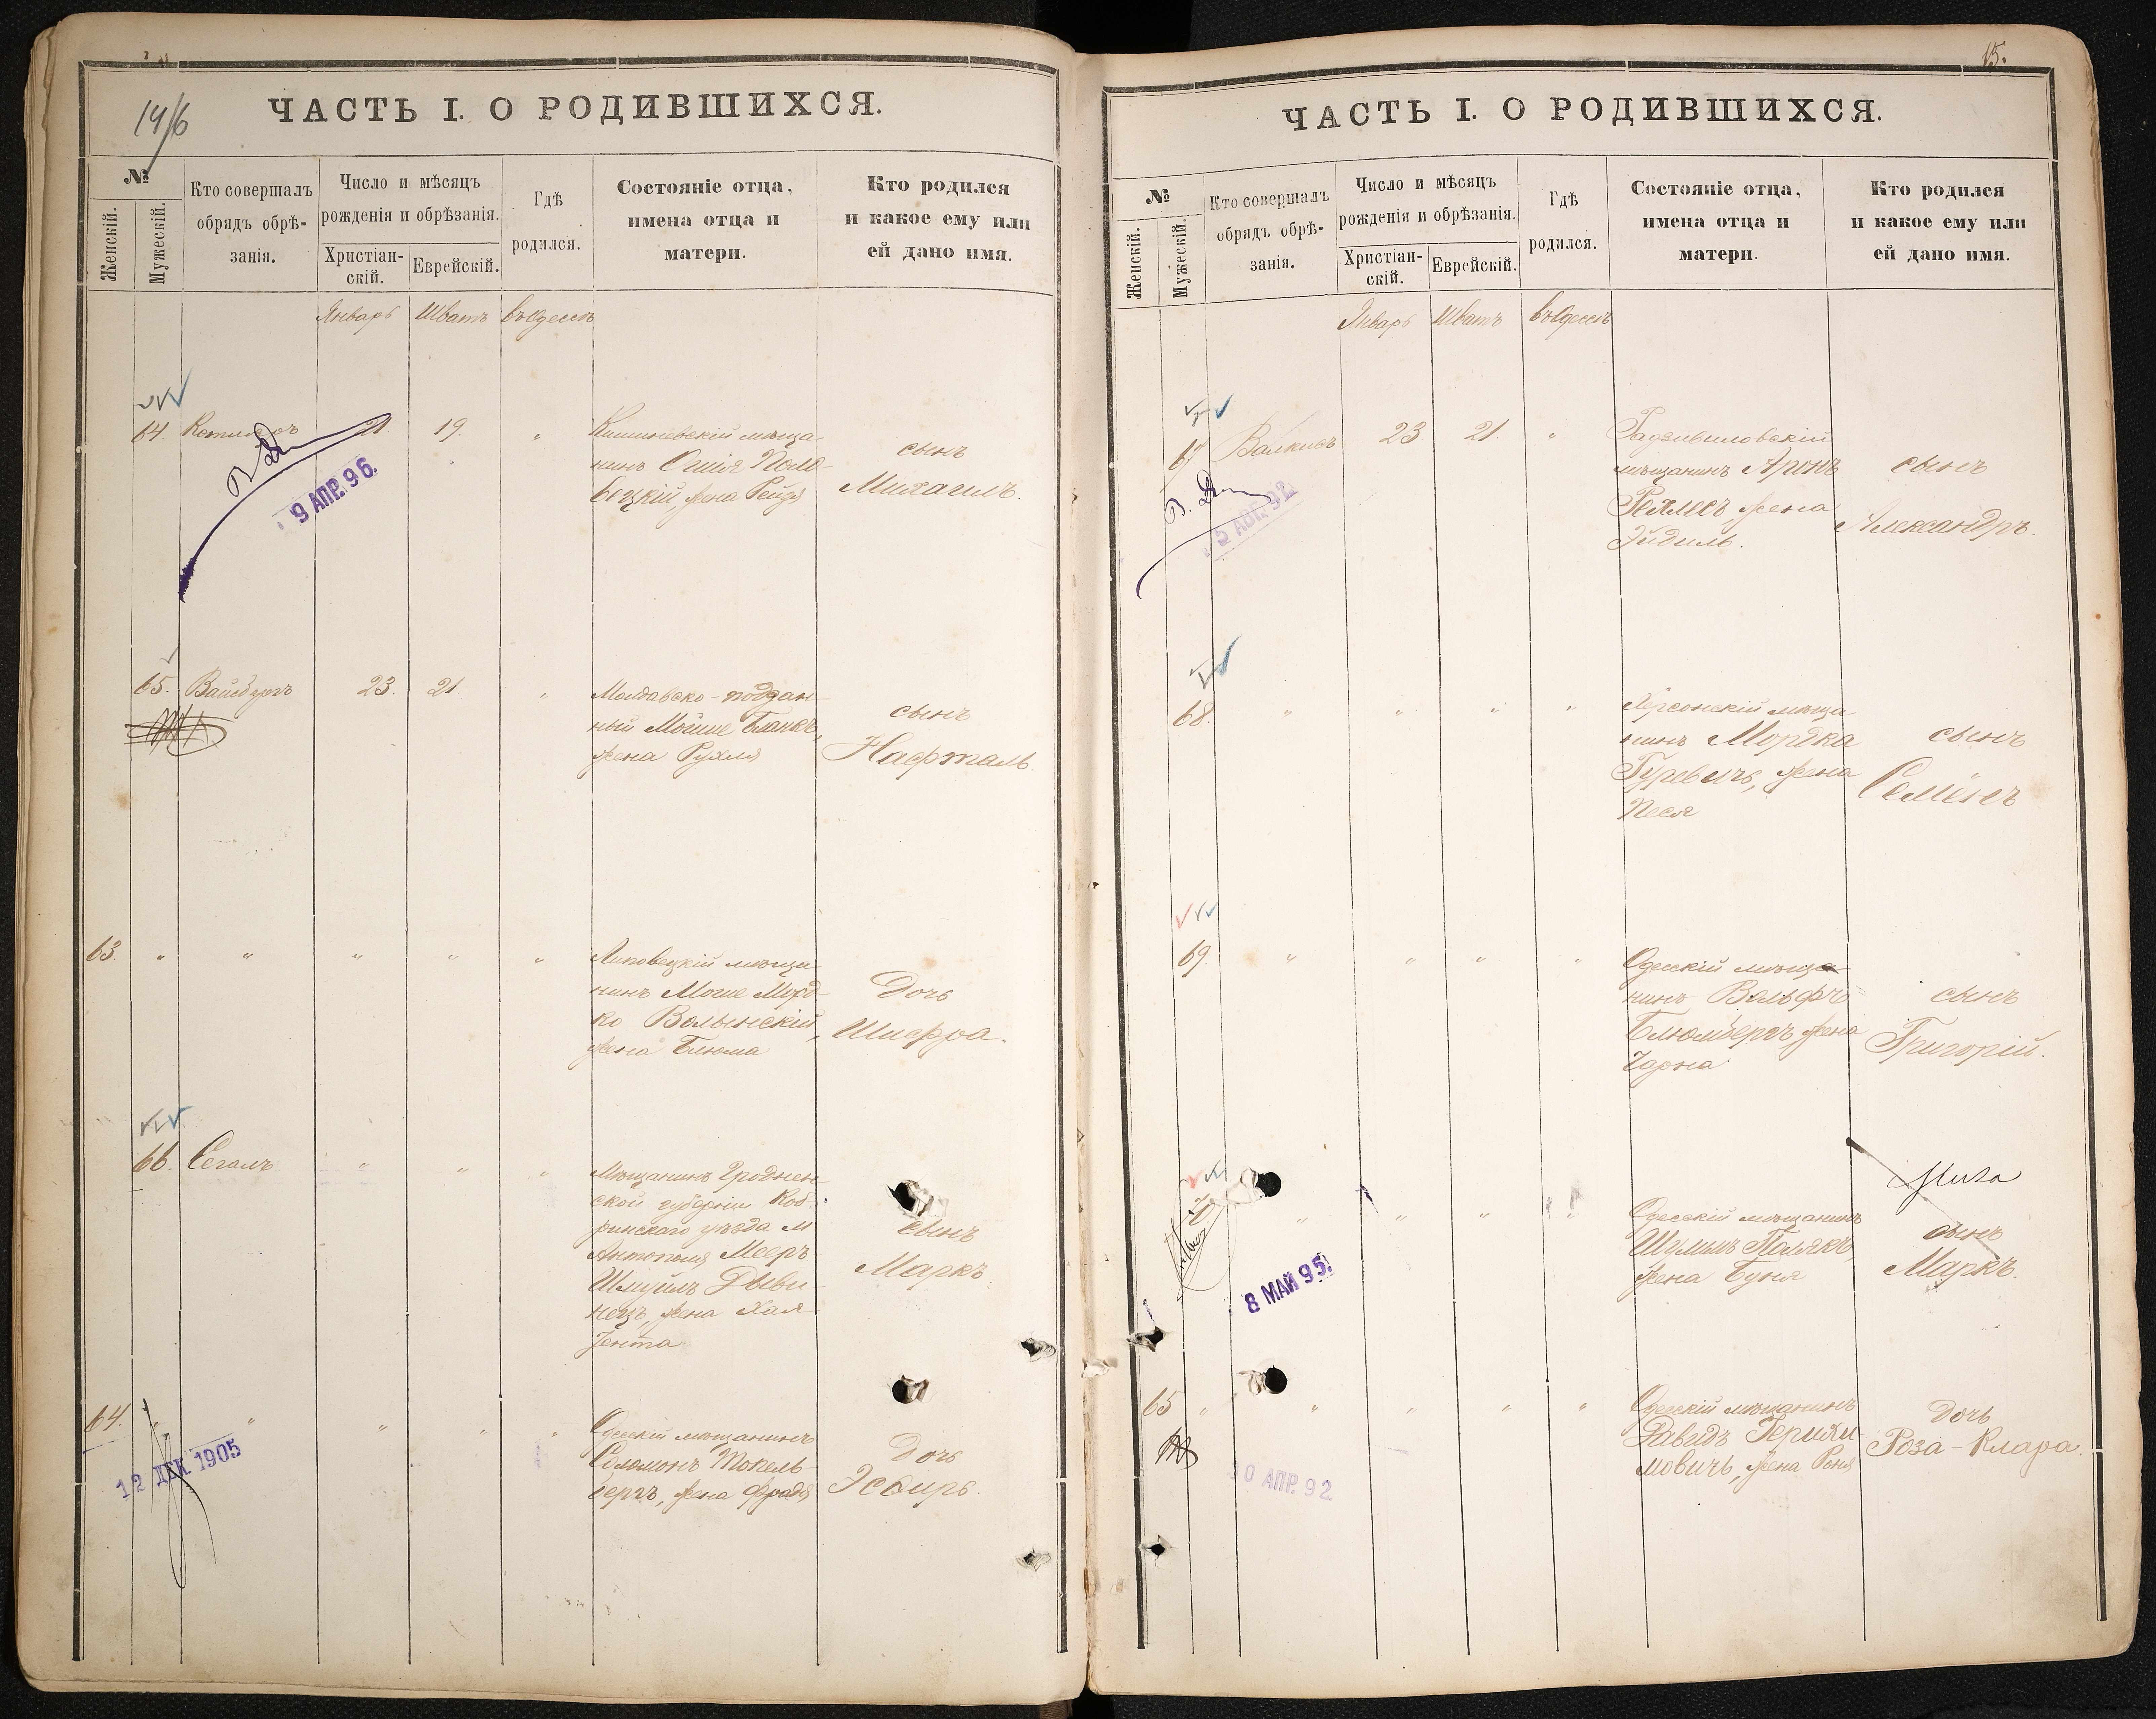 14/6
ЧАСТЬ I. О РОДИВШИХСЯ.
№
Женскій.
Мужескій.
Кто совершалъ
обрядъ обрѣ-
занія.
Число и мѣсяцъ
рожденія и обрѣзанія.
Христіан-
скій.
Еврейскій.
Гдѣ
родился.
Состояніе отца,
имена отца и
матери.
Кто родился
и какое ему или
ей дано имя.
Январь Шватъ въ Одессѣ
64. 19. "
Кишиневскій мѣща-
нинъ
жена Рейзя
сынъ
Михаилъ.
9 АПР. 96.
65. Вайсбургъ 23. 21. "
Молдавско-поддан-
ный Мойше Бланкъ,
жена Рухля
сынъ
Нафталь.
63. " " " " "
Липовецкій мѣща-
нинъ Моше Морд-
ко Волынскій,
жена Блюма
Дочь
Шифра.
66. Сегалъ " " "
Мѣщанинъ Гроднен-
ской губерніи Коб-
ринскаго уѣзда м
Антополя Мееръ
Шмуйлъ Дыви-
нецъ, жена Хая
Јента
сынъ
Маркъ
64. " " " " "
Одесскій мѣщанинъ
Соломонъ Токель-
бергъ, жена Фрадя
Дочь
Эсѳирь.
12 ДЕК 1905
15.
ЧАСТЬ I. О РОДИВШИХСЯ.
№
Женскій.
Мужескій.
Кто совершалъ
обрядъ обрѣ-
занія.
Число и мѣсяцъ
рожденія и обрѣзанія.
Христіан-
скій.
Еврейскій.
Гдѣ
родился.
Состояніе отца,
имена отца и
матери.
Кто родился
и какое ему или
ей дано имя.
Январь Шватъ въ Одессѣ
67 23 21. "
Радзивиловскій
мѣщанинъ Аронъ
жена
Эйдиль.
сынъ
Александръ.
АПР. 92
68. " " " "
Херсонскій мѣща
нинъ Мордка
Гуревичъ, жена
Песя
сынъ
Семенъ
69. " " " "
Одесскій мѣща-
нинъ Вольфъ
Блюмбергъ жена
Чарна
сынъ
Григорій.
" " " "
Одесскій мѣщанинъ
Шулимъ Полякъ,
жена Буня
сынъ
Маркъ.
8 МАЙ 95.
65 " " " " "
Одесскій мѣщанинъ
Давидъ Гершко-
мовичъ, жена Роня
Дочь
Роза-Клара.
АПР. 92